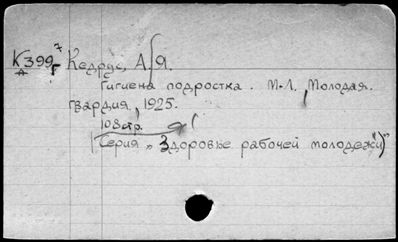 К399г Кедрус, А. Я.
Гигиена подростка. М-Л, Молодая
гвардия, 1925.
108стр.
(Серия "Здоровье рабочей молодежи")